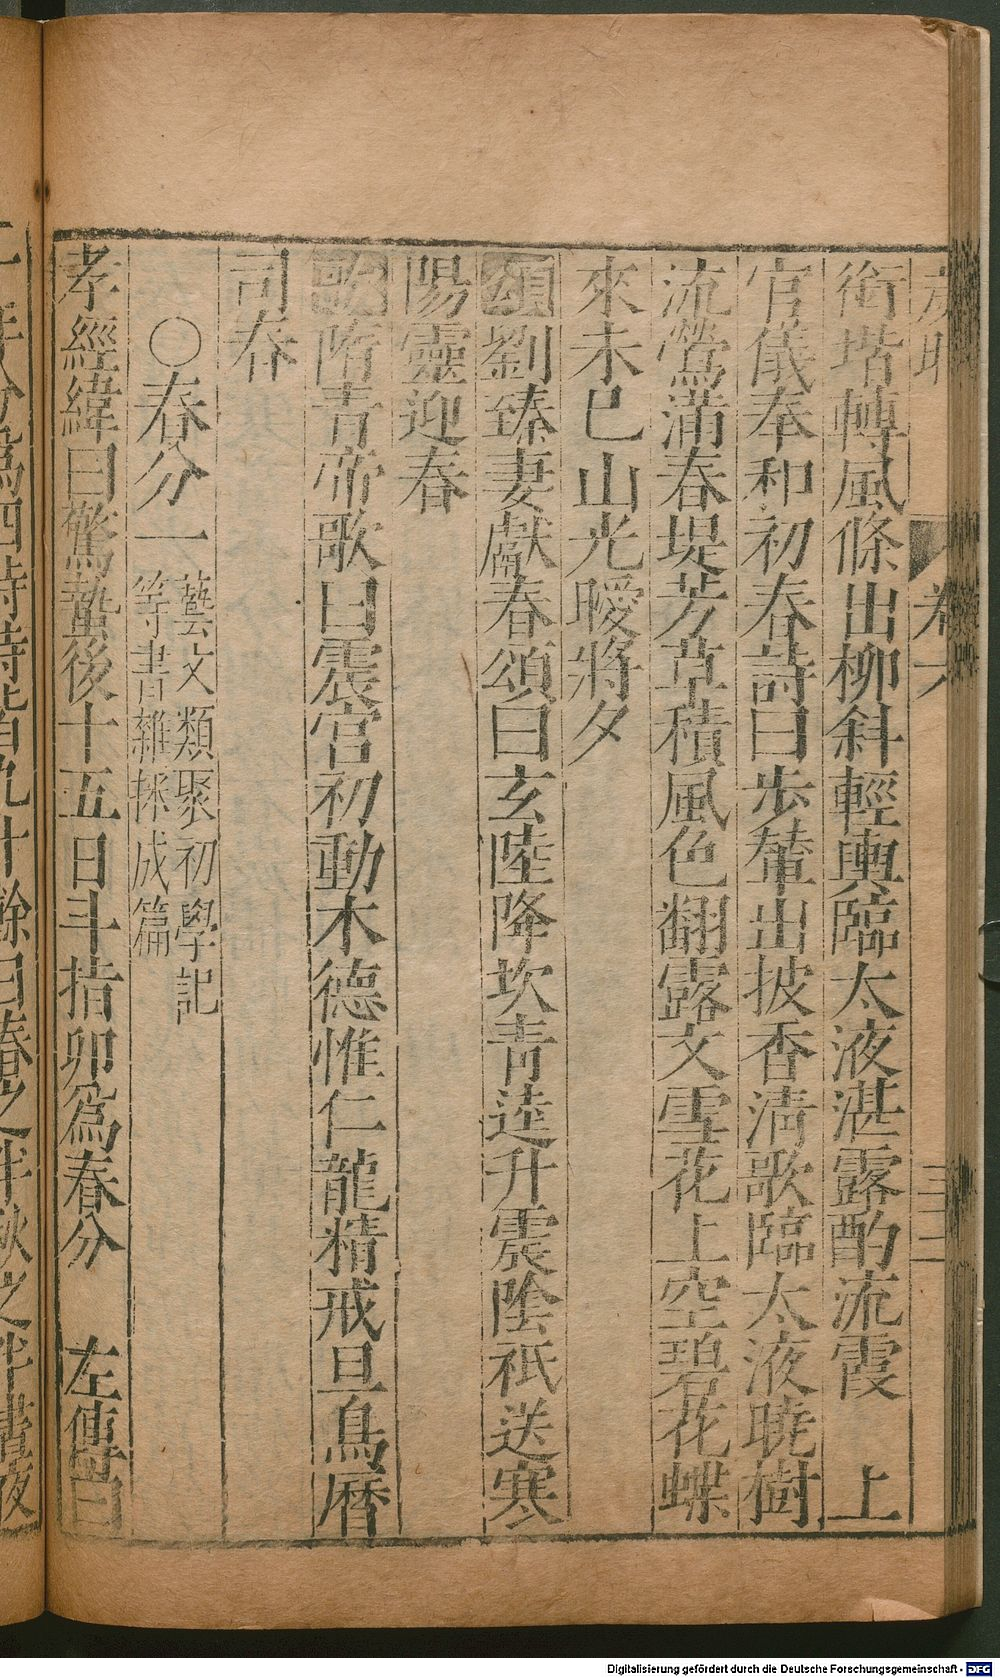 歲時
卷六
三十二
銜堦轉風條出柳斜輕輿臨太液湛露酌流霞　上
官儀奉和初春詩曰步輦出披香清歌臨太液曉樹
流鶯滿春堤芳草積風色翻露文雪花上空碧花蝶
來未已山光曖將夕
頌劉臻妻獻春頌曰玄陸降坎青逵升震陰祇送寒
陽靈迎春
歌隋青帝歌曰震宮初動木德惟仁龍精戒旦鳥曆
司春
○春分一
藝文類聚初學記
等書雜採成篇
孝經緯曰驚蟄後十五日斗指卯爲春分　左傳曰
Digitalisierung gefördert durch die Deutsche Forschungsgemeinschaft - DFG